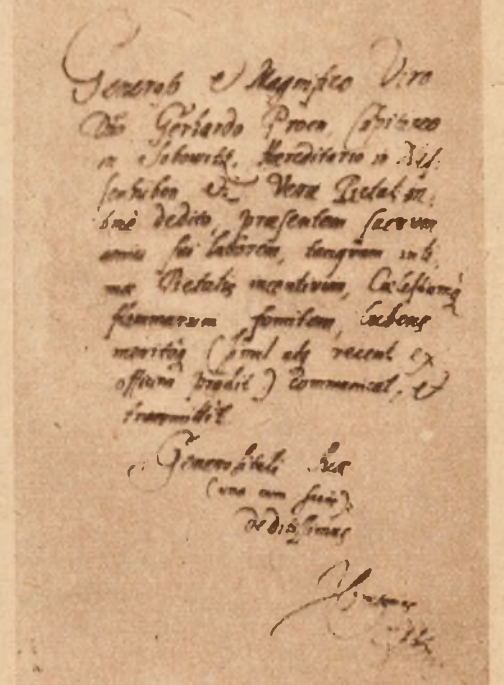 Generoso & Magnifico Viro
Dño Gerhardo Proen, Capitaneo
in Sobowitz, Hereditario in
&c. Veræ Pietati in-
timè dedito, præsentem sacrum
animi sui laborem, tanquam inti-
mæ Pietatis incentivum, Cælestiumq
flammarum fomitem, lubens
meritoq (simul atq recens ex
officina prodit) communicat, et
transmittit
Generositati Suæ
(una cum suis)
deditissimus